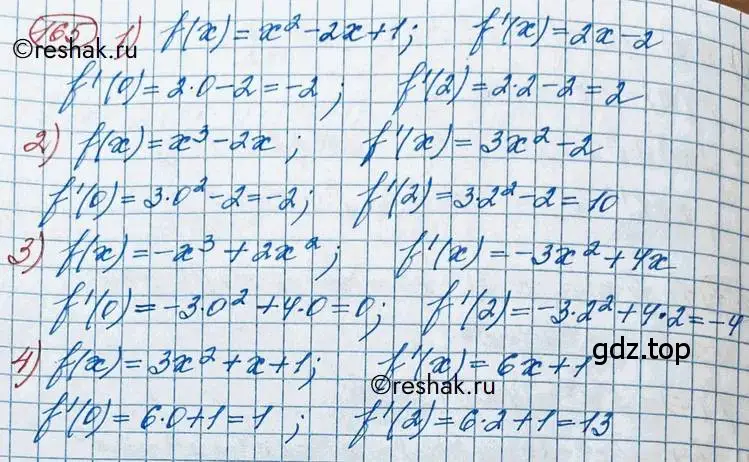 165 1) f(x)=x²-2x+1; f'(x)=2x-2
©reshak.ru
f'(0)=2·0-2=-2; f'(2)=2·2-2=2
2) f(x)=x³-2x; f'(x)=3x²-2
f'(0)=3·0²-2=-2; f'(2)=3·2²-2=10
3) f(x)=-x³+2x²; f'(x)=-3x²+4x
f'(0)=-3·0²+4·0=0; f'(2)=-3·2²+4·2=-4
4) f(x)=3x²+x+1; f'(x)=6x+1
gdz.top
©reshak.ru
f'(0)=6·0+1=1; f'(2)=6·2+1=13